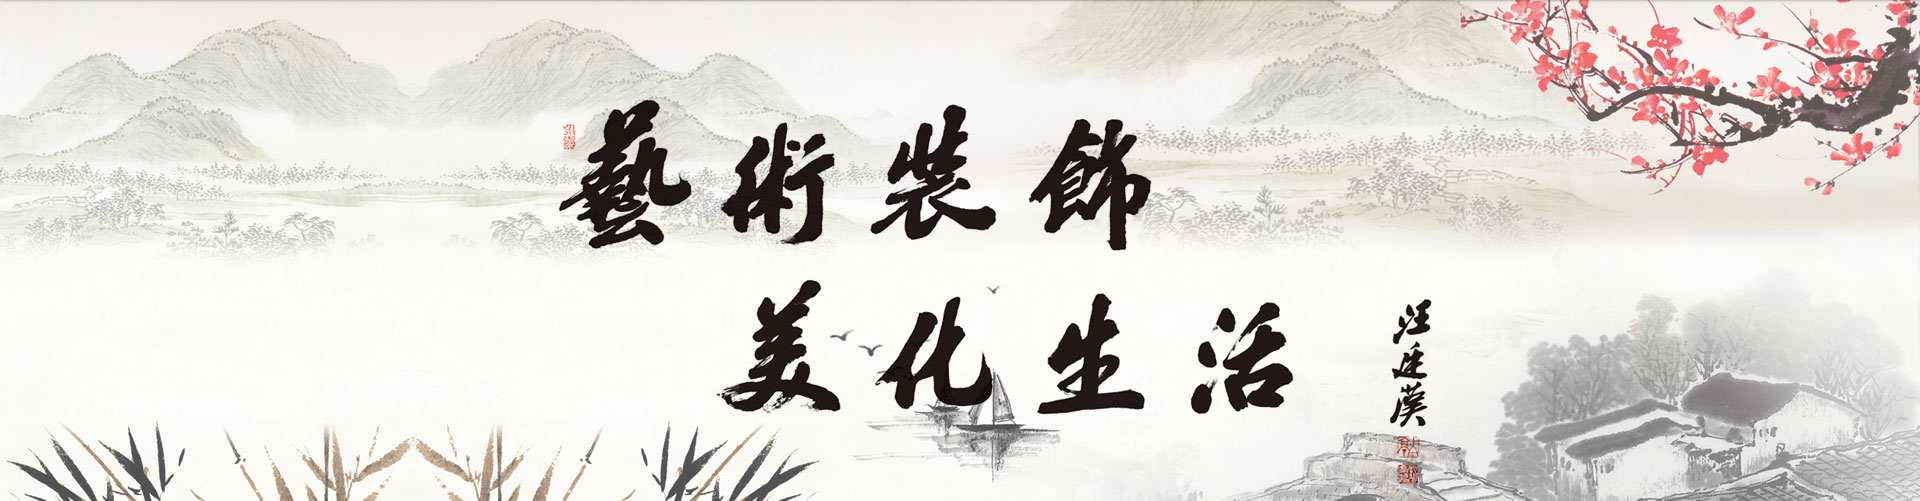 藝術裝飾
美化生活
汪廷漢